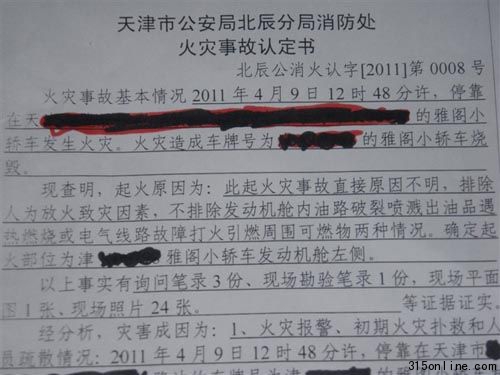 天津市公安局北辰分局消防处
火灾事故认定书
北辰公消火认字[2011]第 0008 号
火灾事故基本情况 2011 年 4 月 9 日 12 时 48 分许，停靠
在天 的雅阁小
轿车发生火灾。火灾造成车牌号为 的雅阁小轿车烧
毁。
现查明，起火原因为：此起火灾事故直接原因不明，排除
人为放火致灾因素，不排除发动机舱内油路破裂喷溅出油品遇
热燃烧或电气线路故障打火引燃周围可燃物两种情况。确定起
火部位为津 雅阁小轿车发动机舱左侧。
以上事实有询问笔录 3 份、现场勘验笔录 1 份，现场平面
图 1 张、现场照片 24 张。 等证据证实。
经分析，灾害成因为：1、火灾报警、初期火灾扑救和人
员疏散情况：2011 年 4 月 9 日 12 时 48 分许，停靠在天津市
315online.com